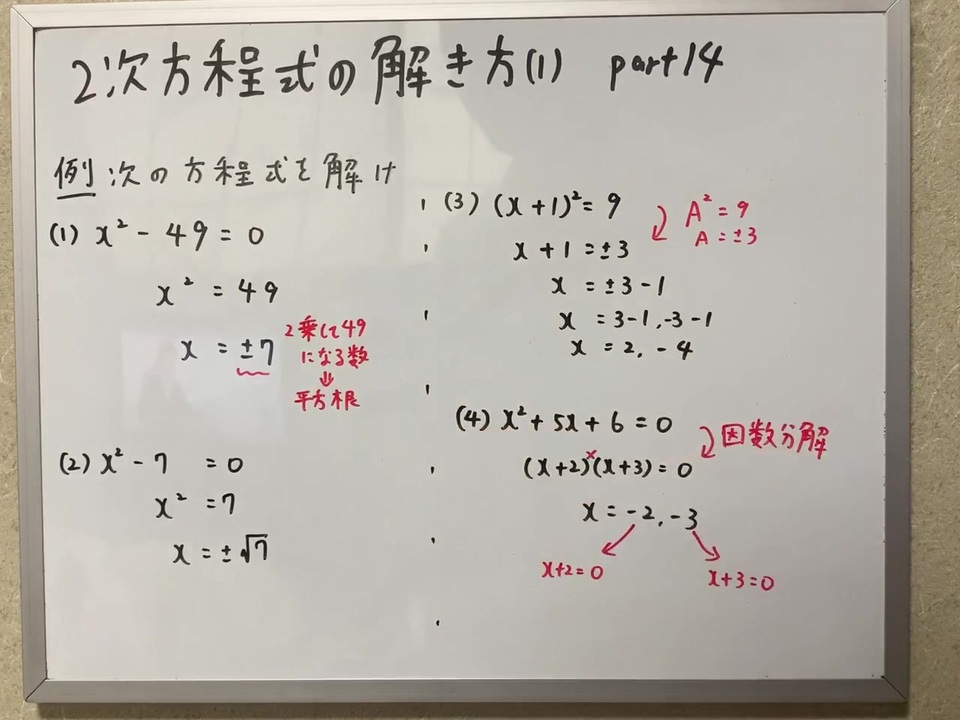 2次方程式の解き方(1) part14
例 次の方程式を解け
(1) x² - 49 = 0
x² = 49
x = ±7
2乗して49
になる数
⇓
平方根
(2) x² - 7 = 0
x² = 7
x = ±√7
(3) (x+1)² = 9
A² = 9
A = ±3
x + 1 = ±3
x = ±3-1
x = 3-1, -3-1
x = 2, -4
(4) x² + 5x + 6 = 0
因数分解
(x+2)×(x+3) = 0
x = -2, -3
x+2=0
x+3=0